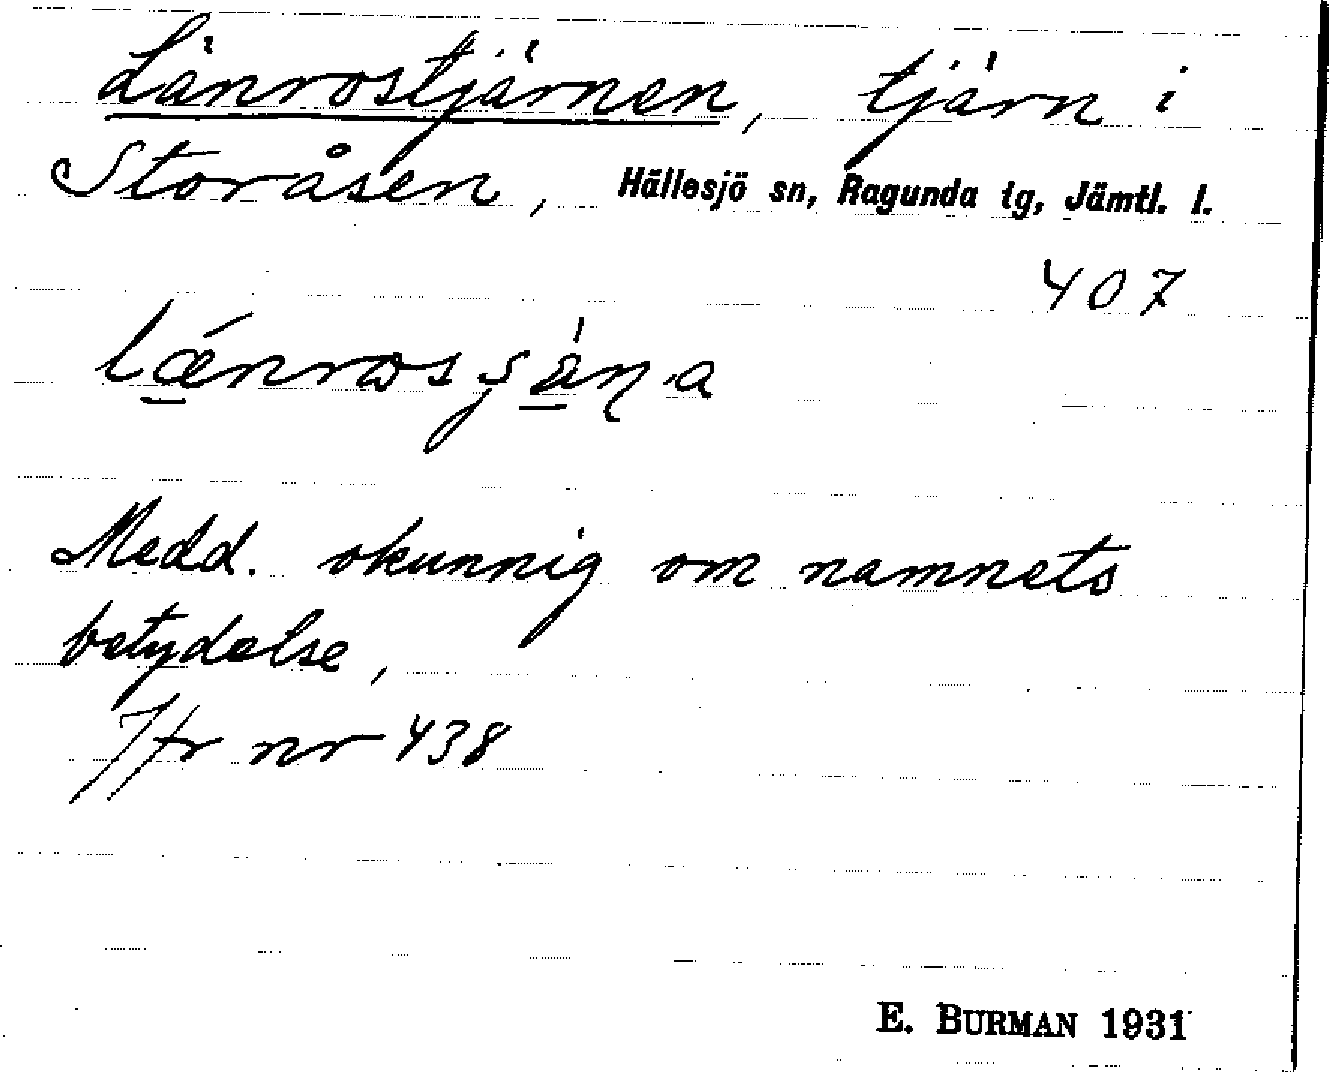 Länrostjärnen, tjärn i
Storåsen, Hällesjö sn, Ragunda tg, Jämtl. l.
407
Medd. okunnig om namnets
betydelse,
Jfr nr 438
E. BURMAN 1931